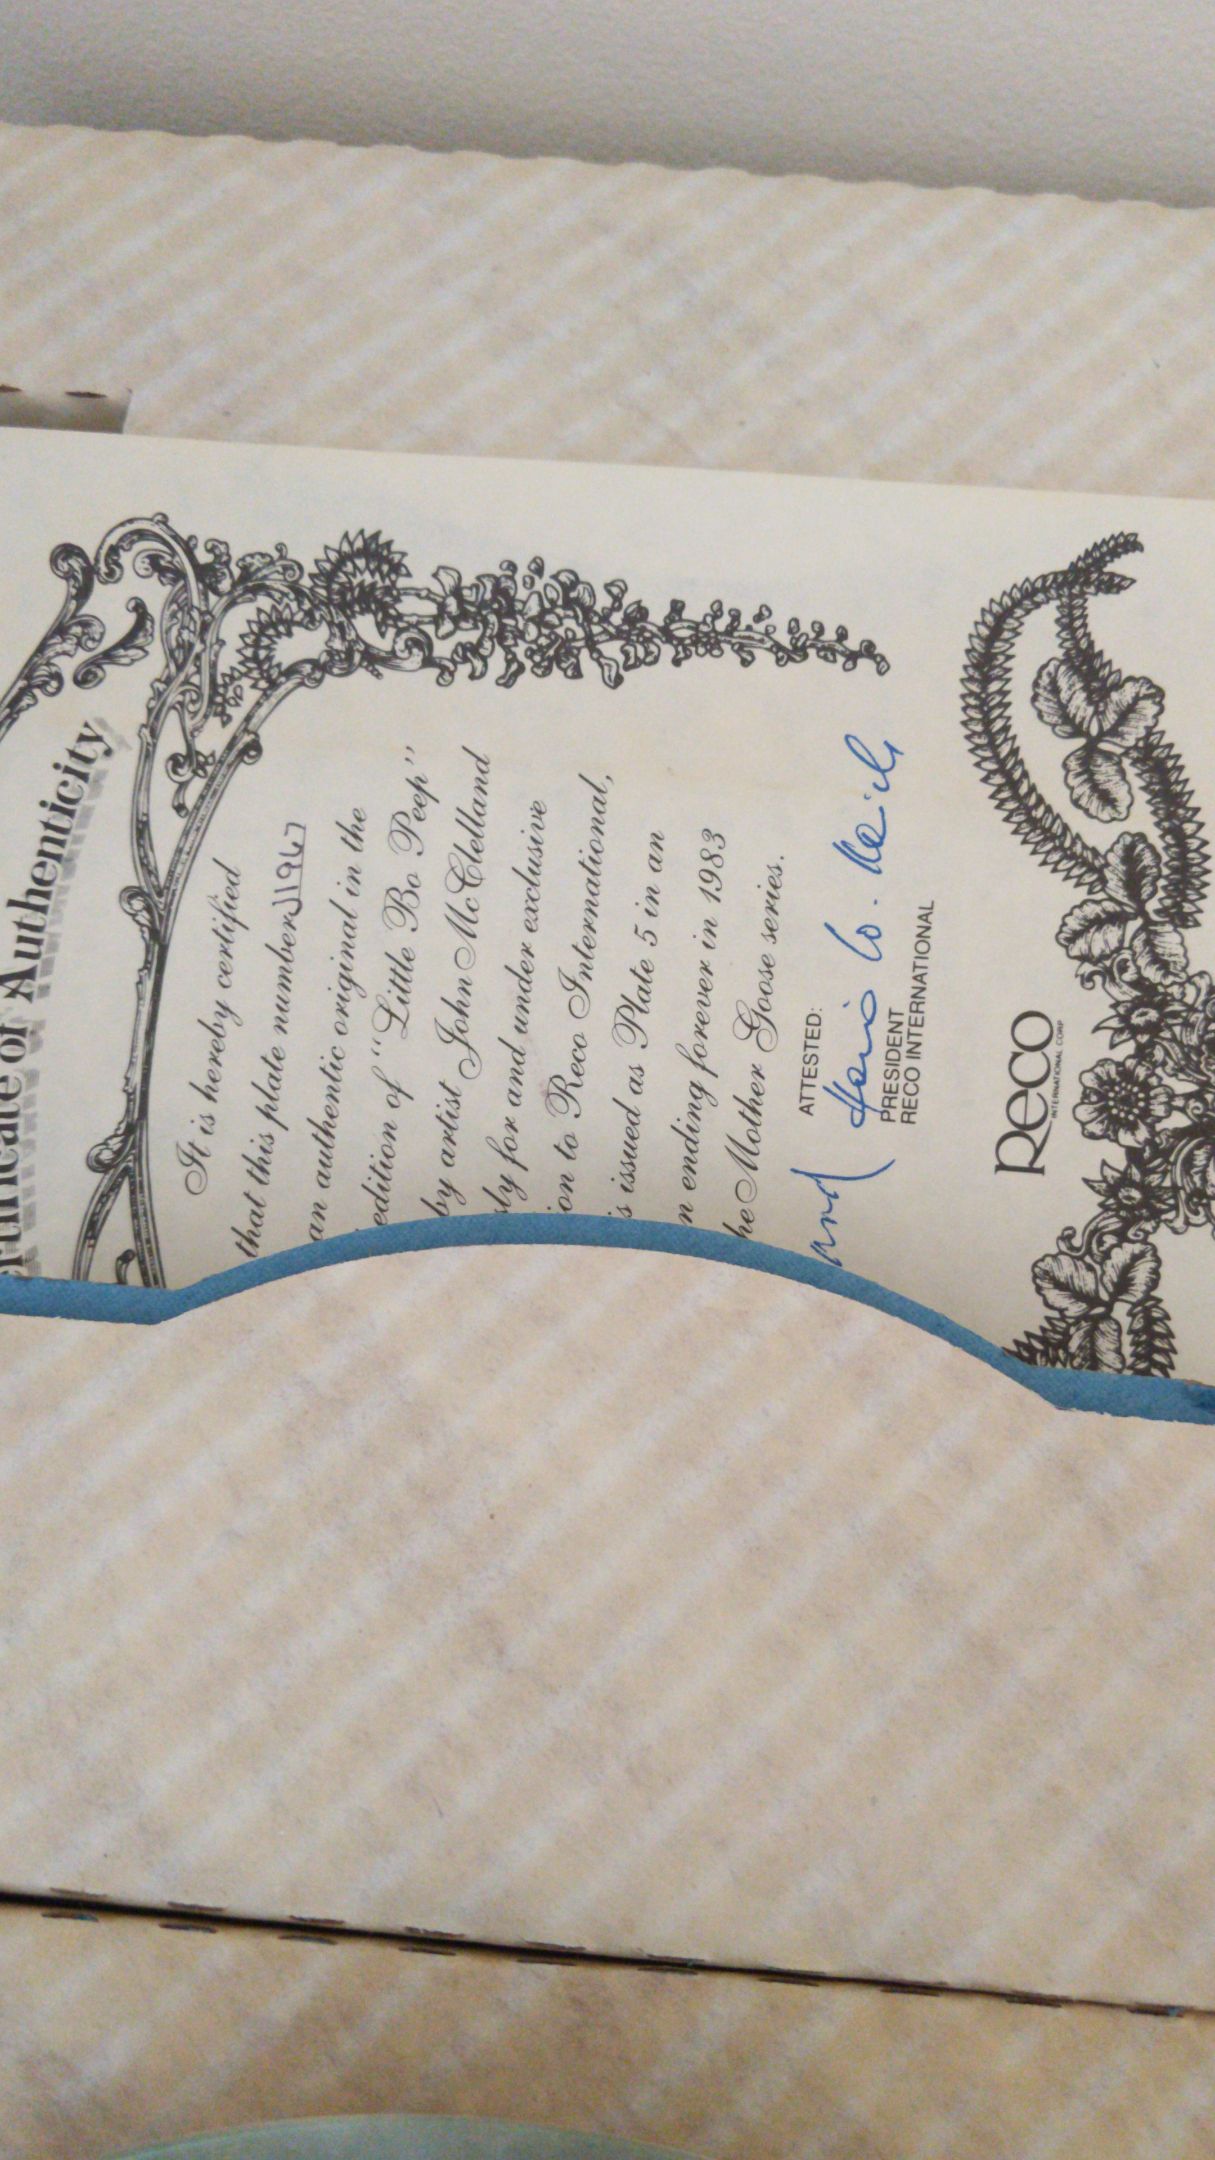 Certificate of Authenticity
It is hereby certified
that this plate number 11967
an authentic original in the
edition of "Little Bo Peep"
by artist John McClelland
ly for and under exclusive
ion to Reco International,
s issued as Plate 5 in an
n ending forever in 1983
he Mother Goose series.
ATTESTED:
and
PRESIDENT
RECO INTERNATIONAL
Reco
INTERNATIONAL CORP.